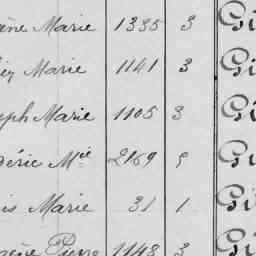 ène Marie 1335 3 Gi
Marie 1141 3 Gi
ph Marie 1105 3 Gi
déric Mie 2169 5 Gi
is Marie 31 1 Gi
gène Pierre 1148 3 Gi